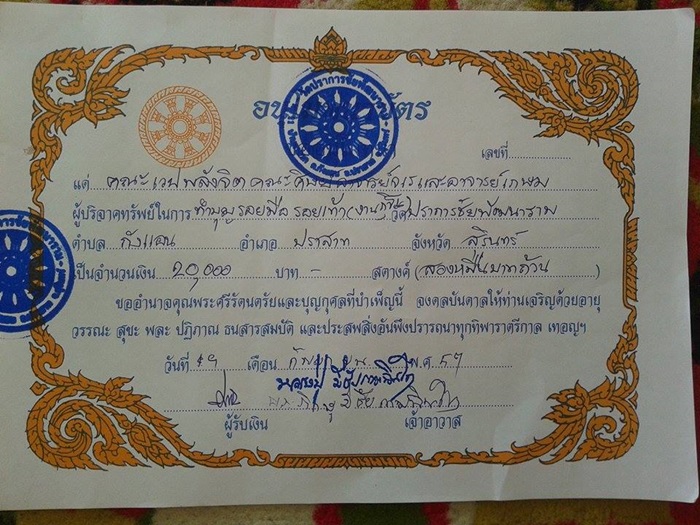 อนุโมทนาบัตร
วัดปราการชัยพัฒนาราม
เลขที่
แด่ คณะเวปพลังจิต คณะศิษย์ และอาจารย์เกษม
ผู้บริจาคทรัพย์ในการ ทำบุญรอยมือ รอยเท้า วัดปราการชัยพัฒนาราม
ตำบล กังแอน อำเภอ ปราสาท จังหวัด สุรินทร์
เป็นจำนวนเงิน 20,000 บาท - สตางค์ (สองหมื่นบาทถ้วน)
ขออำนาจคุณพระศรีรัตนตรัยและบุญกุศลที่บำเพ็ญนี้ จงดลบันดาลให้ท่านเจริญด้วยอายุ
วรรณะ สุขะ พละ ปฏิภาณ ธนสารสมบัติ และประสพสิ่งอันพึงปรารถนาทุกทิพาราตรีกาล เทอญฯ
วันที่ เดือน กันยายน พ.ศ. 57
ผู้รับเงิน เจ้าอาวาส